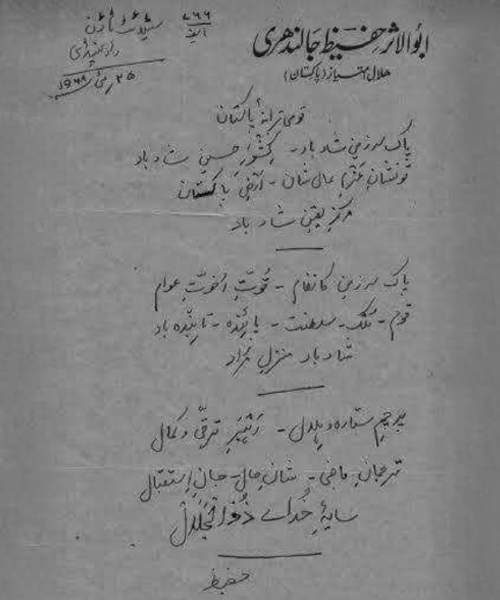 ابوالاثر حفیظ جالندھری
ہلال امتیاز (پاکستان)
سیٹلائٹ ٹاؤن
راولپنڈی
قومی ترانۂ پاکستان
پاک سرزمین شاد باد - کشورِ حسین شاد باد
تو نشانِ عزمِ عالی شان - ارضِ پاکستان
مرکزِ یقین شاد باد
پاک سرزمین کا نظام - قوتِ اخوتِ عوام
قوم - ملک - سلطنت - پائندہ - تابندہ باد
شاد باد منزلِ مراد
پرچمِ ستارہ و ہلال - رہبرِ ترقی و کمال
ترجمانِ ماضی - شانِ حال - جانِ استقبال
سایۂ خدائے ذوالجلال
حفیظ